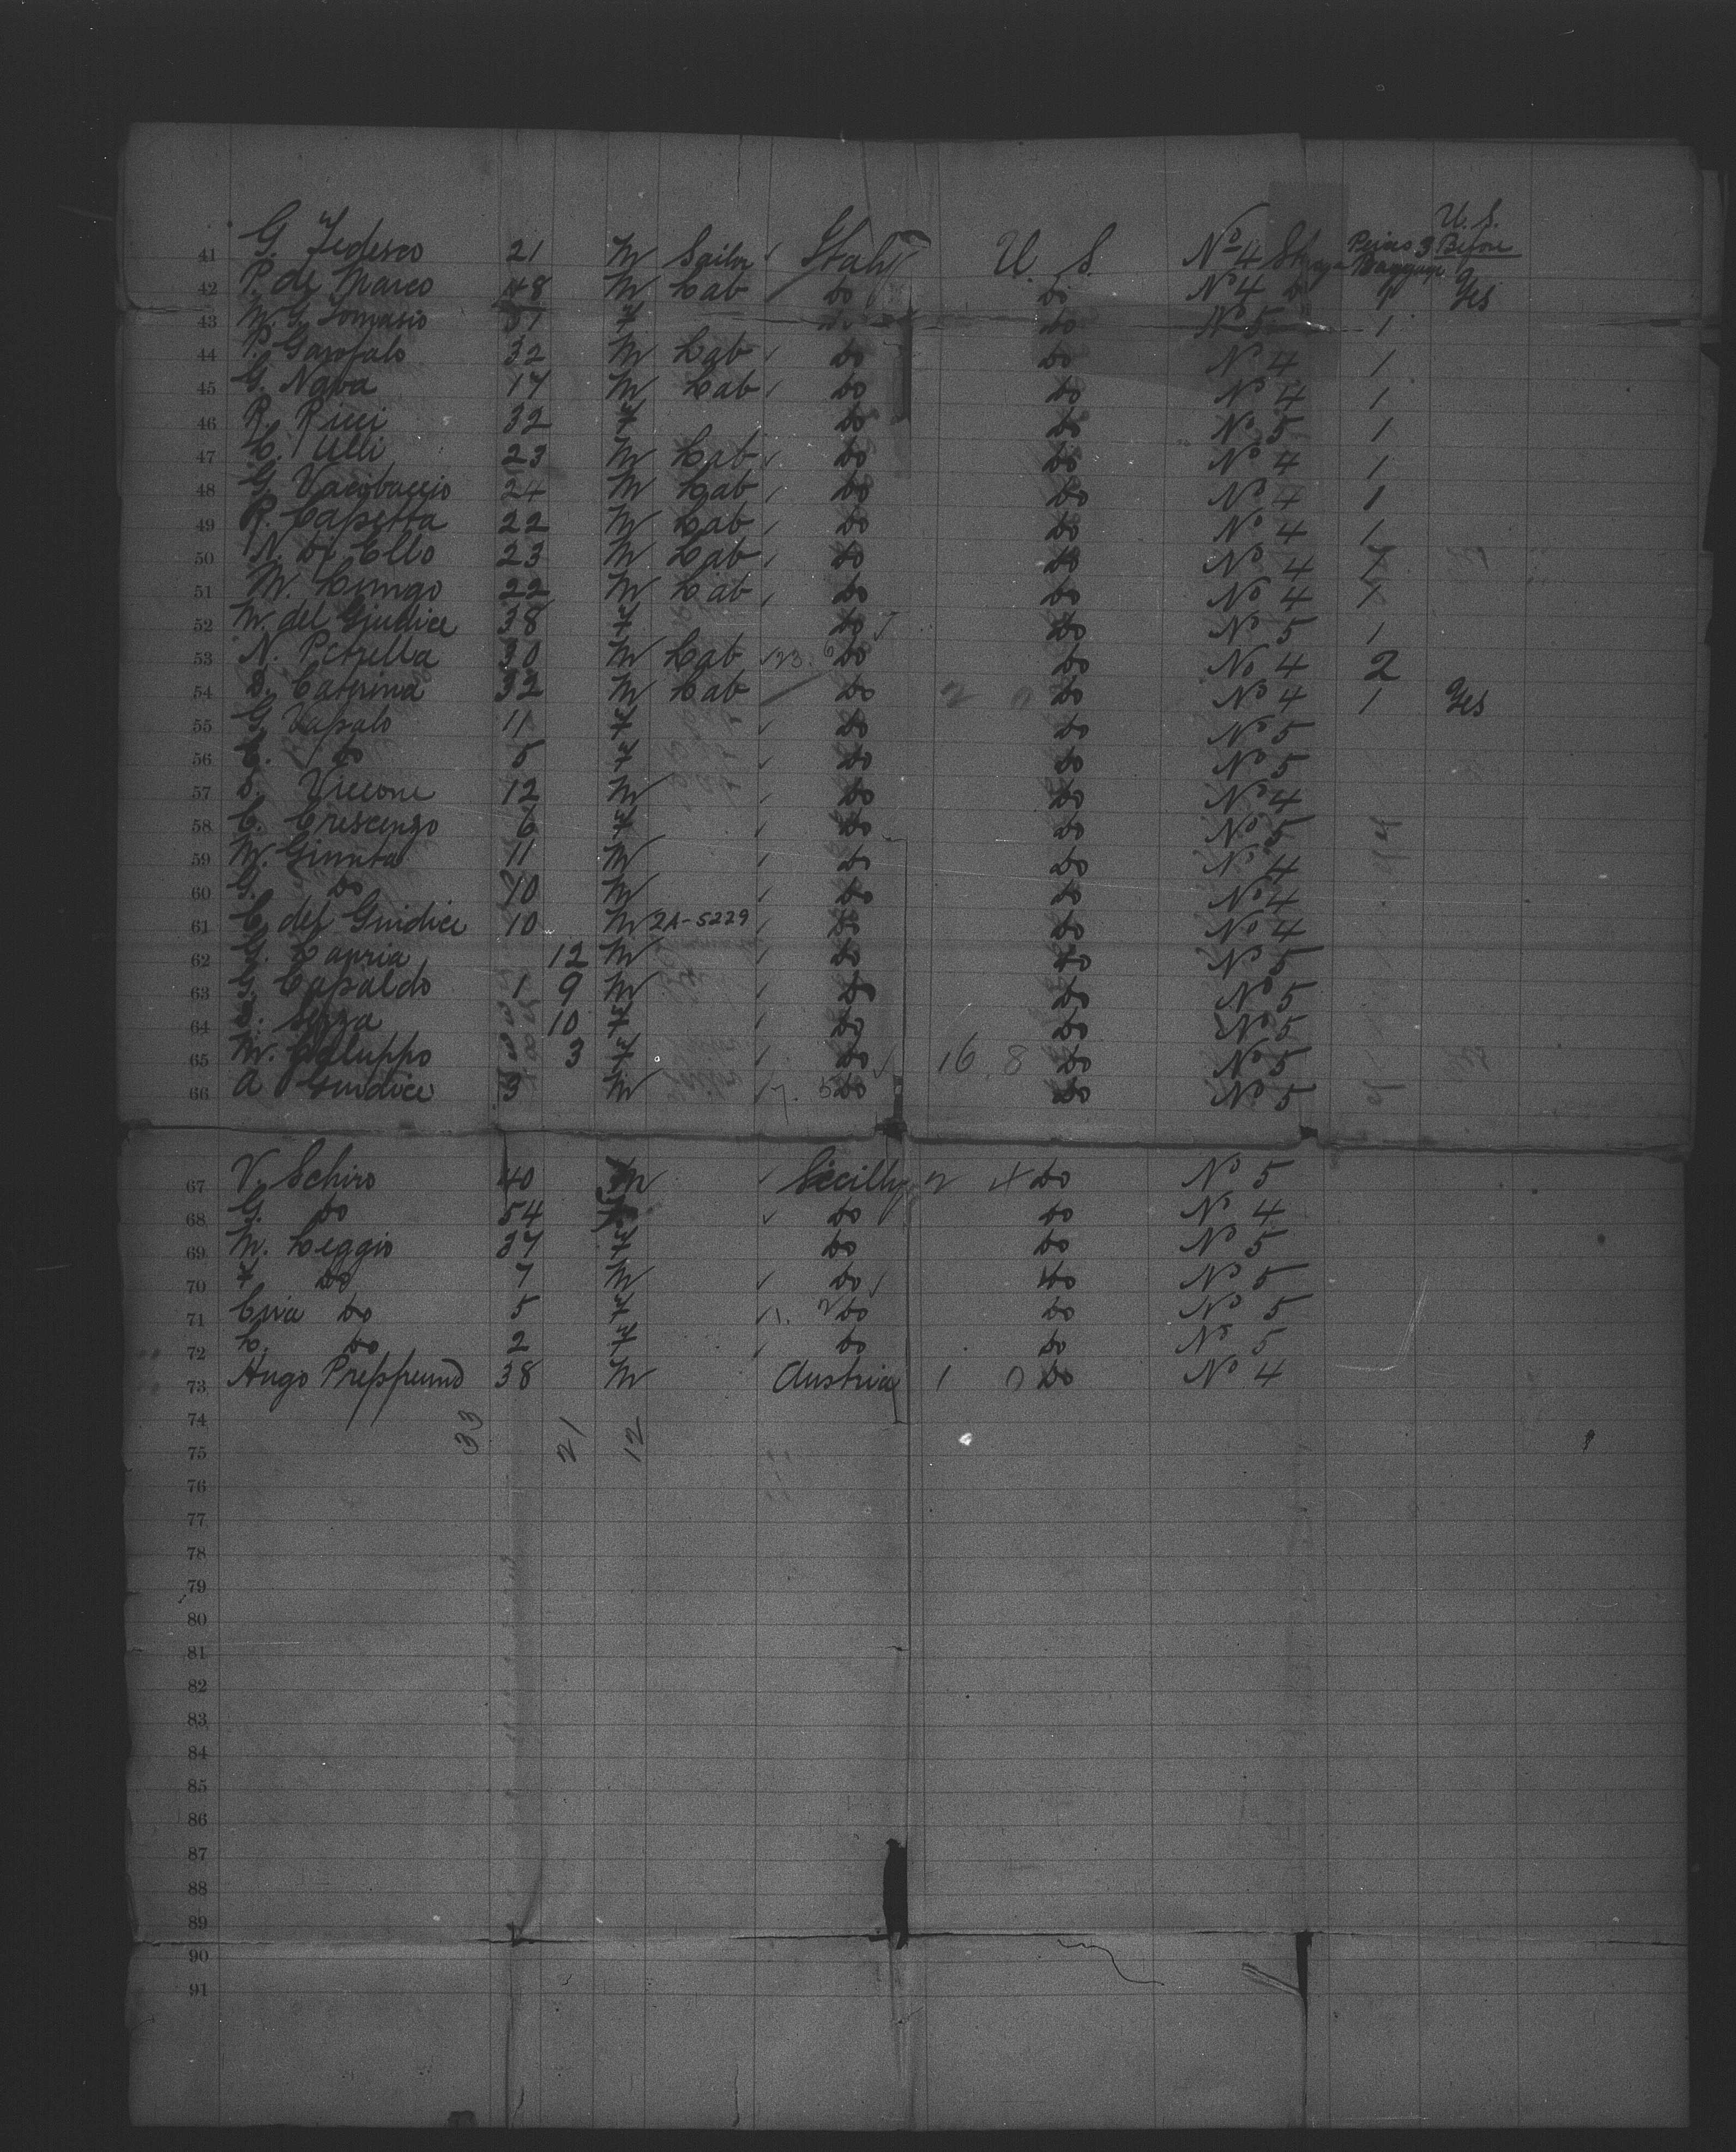 U. S.
Pieces Baggage Before
41 G. Tedesco 21 M Sailor Italy U. S. No 4 3
42 P. de Marco 48 M Lab do do No 4 do 1 Yes
43 M. G. Tomasio 31 F do do No 5 1
44 P. Garofalo 32 M Lab do do No 4 1
45 G. Nava 17 M Lab do do No 4 1
46 R. Ricci 32 F do do No 5 1
47 23 M Lab do do No 4 1
48 G. Vacobuccio 24 M Lab do do No 4 1
49 R. Capetta 22 M Lab do do No 4 1
50 N. 23 M Lab do do No 4 1
51 M. 22 M Lab do do No 4 1
52 M. del Giudice 38 F do do No 5 1
53 N. Petrella 30 M Lab do do No 4 2
54 D. Caterina 32 M Lab do do No 4 1 Yes
55 G 11 F do do No 5
56 C. do 5 F do do No 5
57 D. Viccone 12 M do do No 4
58 C. Crescenzo 6 F do do No 5
59 M. Giunta 11 M do do No 4
60 G. do 10 M do do No 4
61 C. del Guidice 10 M 2A-5229 do do No 4
62 G. Lauria 12 M do do No 5
63 G. Capaldo 1 9 M do do No 5
64 10 F do do No 5
65 M. Galuppo 3 F do 16 8 do No 5
66 A Guidice 9 M do do No 5
67 V. Schiro 40 M Sicilly 2 4 do No 5
68 G. do 54 do do No 4
69 M. Leggio 37 F do do No 5
70 F do 7 M do do No 5
71 do 5 F do do No 5
72 C. do 2 F do do No 5
73 Hugo 38 M Austria 1 0 do No 4
74
33 21 12
75
76
77
78
79
80
81
82
83
84
85
86
87
88
89
90
91